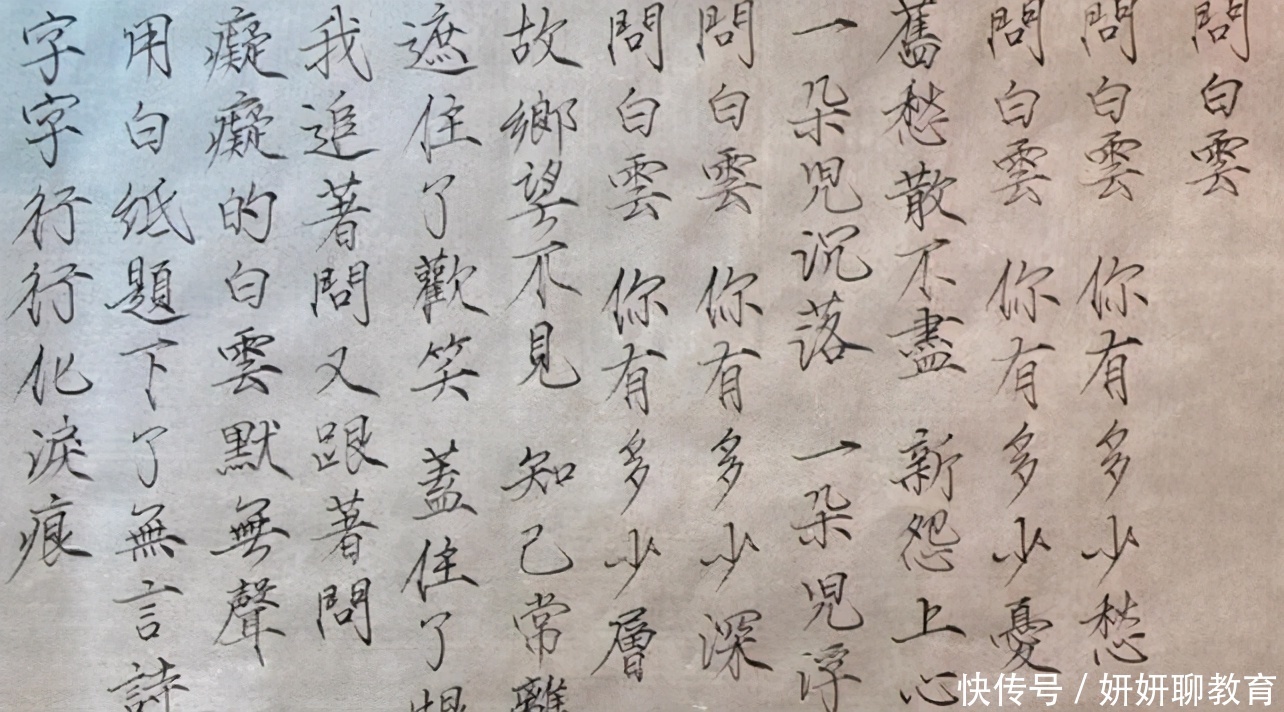 問白雲
問白雲 你有多少愁
問白雲 你有多少憂
舊愁散不盡 新怨上心
一朵兒沉落 一朵兒浮
問白雲 你有多少深
問白雲 你有多少層
故鄉望不見 知己常離
遮住了歡笑 蓋住了恨
我追著問又跟著問
癡癡的白雲默無聲
用白紙題下了無言詩
字字行行化淚痕
快传号 / 妍妍聊教育